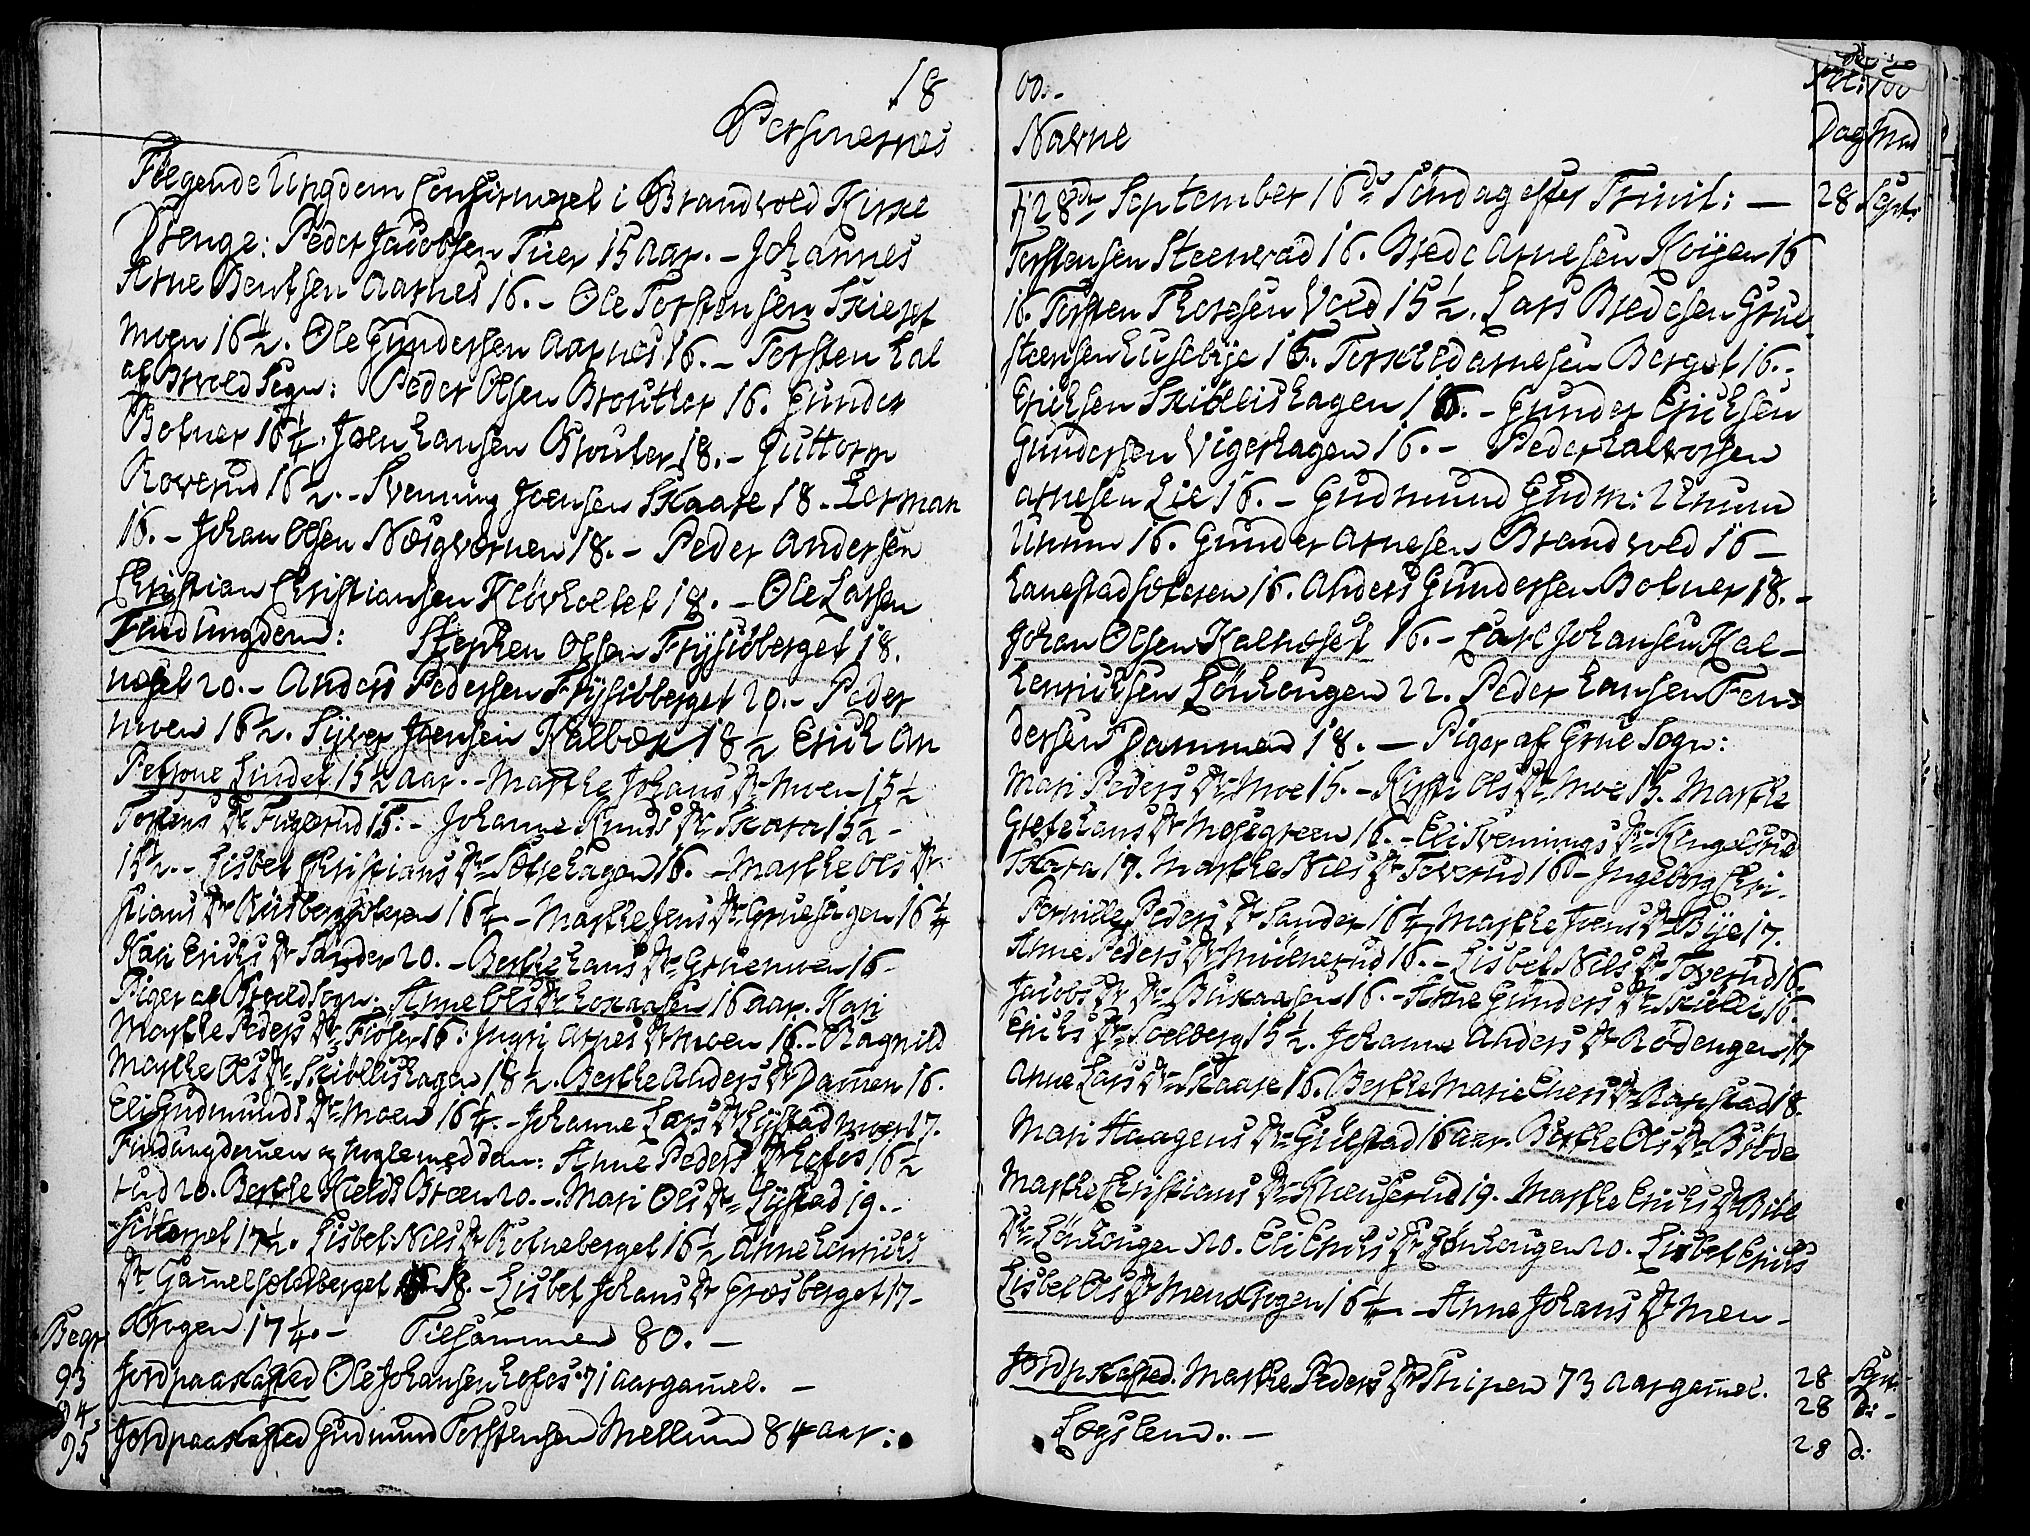 18
Personernes
Følgende Ungdom Confirmeret i Brandvold Kirke
Drenge: Peder Jacobsen Tuer 15 aar. - Johannes
Arne Bentsen Aarnes 16. - Ole Torstensen Skieret
moen 16½. Ole Gundersen Aarnes 16. - Torsten Hal
af Brvold Sogn: Peder Olsen Brouther 16. Gunder
Botner 16¼. Joen Hansen Brouter 18. - Guttorm
Roverud 16½. - Svenning Joensen Skaare 18. Herman
16. - Johan Olsen Næsgvernen 18. - Peder Andersen
Christian Christiansen Kløvholtet 18. - Ole Larsen
Findungdom: Stephen Olsen Frysiøberget 18.
noset 20. - Anders Pedersen Frysiøberget 20. - Peder
moen 16½. Syver Joensen Kalbæk 18½ Erich An
Petrone Linder 15½ aar. - Marthe Johans Dr Moen 15½
Tostens Dr Fugerud 15. - Johanne Knuds Dr Skara 15½ -
15½. - Lisbet Christians Dr Sætrehagen 16. - Marthe Ols Dr
stians Dr Rusbergsæteren 16¼ - Marthe Jens Dr Gruehagen 16¼
Kari Erichs Dr Sander 20. - Berthe Hans Dr Gruemoen 16 -
Piger af Brvold Sogn. Anne Ols Dr Hokaasen 16 aar. Kari
Marthe Peders Dr Fioser 16: Ingri Arnes Dr Moen 16. - Ragnild
Marthe Ols Dr Skiöllishagen 18½. Berthe Anders Dr Damen 16.
Eli Gudmunds Dr Moen 16¼. - Johanne Lars Dr Lystad moen 17.
Findungdomen og nogle med dem: Anne Peders Dr Hofos 16½
rud 20. Berthe Kields Bræen 20. - Mari Ols Dr Lystad 19. -
17½. Lisbet Nils Dr Rotneberget 16½ Anne Henrichs
Dr Gamelsætberget 18. - Lisbet Johans Dr Græsberget 17 -
Krogen 17¼. - Tilsammen 80. -
Begr
93 Jordpaakasted Ole Johansen Hofos 71 aar gamel. -
94
95 Jordpaakasted Gudmund Torstensen Mellum 84 aar:
00. -
Navne
Dag Mnd
d: 28de September 16de Søndag efter Trinit: - 28 Sept:
Torstensen Steenvad 16. Brede Arnesen Koijen 16
16. Torsten Thoresen Vold 15½. Lars Bredesen Grue
steensen Husebye 16. Torkild Arnesen Berget 16. -
Erichsen Skiöllishagen 16. - Gunder Erichsen
Gundersen Vigerhagen 16. - Peder Halvorsen
Arnesen Lie 16. - Gudmund Gudm: Utnum
Utnum 16. Gunder Arnesen Brandvold 16 -
Hanestadsæteren 16. Anders Gundersen Botner 18. -
Johan Olsen Kalnoset 16. - Carl Johansen Kal-
Henrichsen Lönhougen 22. Peder Hansen Ten-
dersen Dammen 18. - Piger af Grue Sogn:
Mari Peders Dr Moe 15. - Kirsti Ols Dr Moe 15. Marthe
Grethe Hans Dr Mosegreen 16. - Eli Svennings Dr Kingelsrud
Skara 17. Marthe Nils Dr Toverud 16 - Ingeborg Chri-
Pernille Peders Dr Sander 16¼ Marthe Joens Dr Bye 17.
Anne Peders Dr Mölnerud 16. - Lisbet Nils Dr Toverud 16.
Jacobs Dr Bukaasen 16. - Anne Gunders Dr Skiölli 16.
Erichs Dr Soelberg 15½. Johanne Anders Dr Rodengen 17
Anne Lars Dr Skaare 16. Berthe Marie Eners Dr Ropstad 18.
Mari Haagens Dr Gulestad 16 aar. Berthe Ols Dr Bröde
Marthe Christians Dr Kneuserud 19. Marthe Erichs Dr
Dr Lönhougen 20. Eli Erichs Dr Lönhougen 20. Lisbet Erichs
Lisbet Ols Dr Menskrogen 16¼ - Anne Johans Dr Men-
Jordp. kasted. Marthe Peders Dr Stripen 73 aar gamel. 28 Sept.
28 d: -
Lægslem. - 28 d: